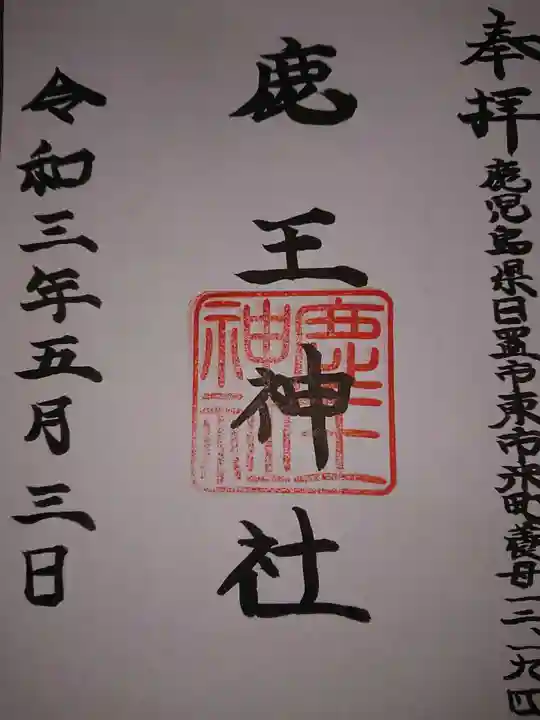 奉拝
鹿児島県日置市東市来町養母一二、一九四
鹿王神社
令和三年五月三日